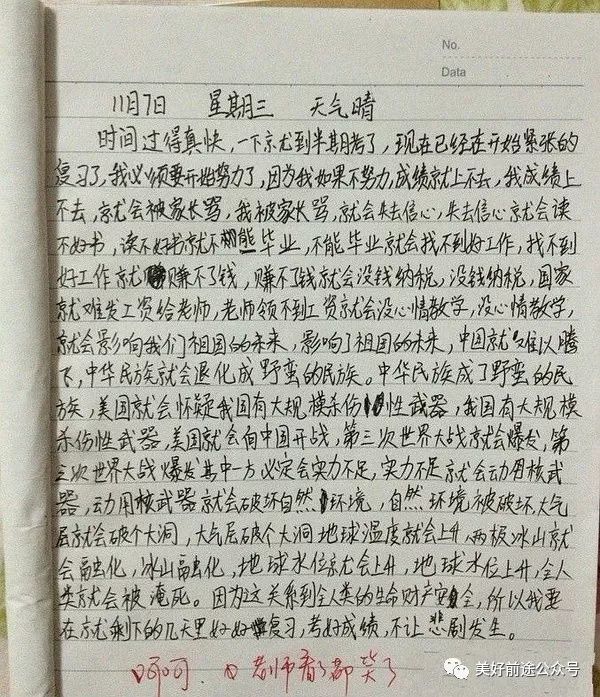 No.
Data
11月7日 星期三 天气晴
时间过得真快，一下就到半期考了，现在已经在开始紧张的
复习了，我必须要开始努力了，因为我如果不努力，成绩就上不去，我成绩上
不去，就会被家长骂，我被家长骂，就会失去信心，失去信心就会读
不好书，读不好书就不能毕业，不能毕业就会找不到好工作，找不到
好工作就赚不了钱，赚不了钱就会没钱纳税，没钱纳税，国家
就难发工资给老师，老师领不到工资就会没心情教学，没心情教学，
就会影响我们祖国的未来，影响了祖国的未来，中国就难以腾
飞，中华民族就会退化成野蛮的民族。中华民族成了野蛮的民
族，美国就会怀疑我国有大规模杀伤性武器，我国有大规模
杀伤性武器，美国就会向中国开战，第三次世界大战就会爆发，第
三次世界大战爆发其中一方必定会实力不足，实力不足就会动用核武
器，动用核武器就会破坏自然环境，自然环境被破坏，大气
层就会破个大洞，大气层破个大洞地球温度就会上升，两极冰山就
会融化，冰山融化，地球水位就会上升，地球水位上升，全人
类就会被淹死。因为这关系到全人类的生命财产安全，所以我要
在就剩下的几天里好好复习，考好成绩，不让悲剧发生。
呵呵. 老师看了都笑了
美好前途公众号